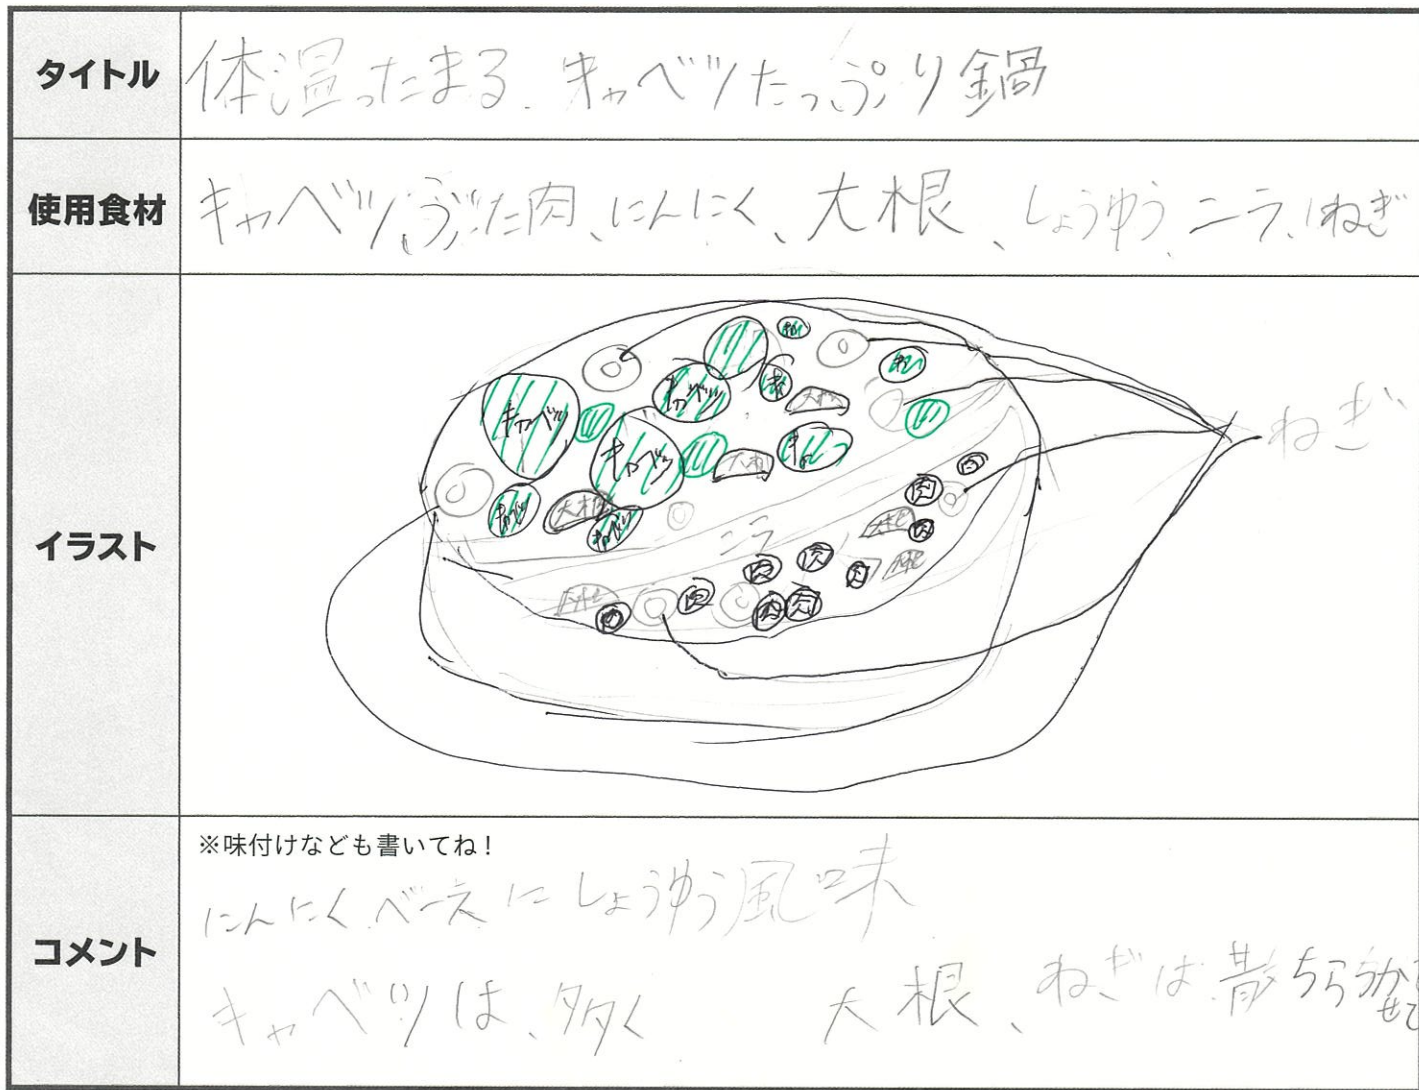 タイトル
体温ったまる、キャベツたっぷり鍋
使用食材
キャベツ、ぶた肉、にんにく、大根、しょうゆう、ニラ、ねぎ
イラスト
キャベツ
キャベツ
大根
キャベツ
大根
キャベツ
大根
キャベツ
ねぎ
肉
肉
大根
肉
ニラ
肉
肉
肉
大根
肉
肉
肉
コメント
※味付けなども書いてね!
にんにくベースにしょうゆう風味
キャベツは、多く 大根、ねぎは散ちら